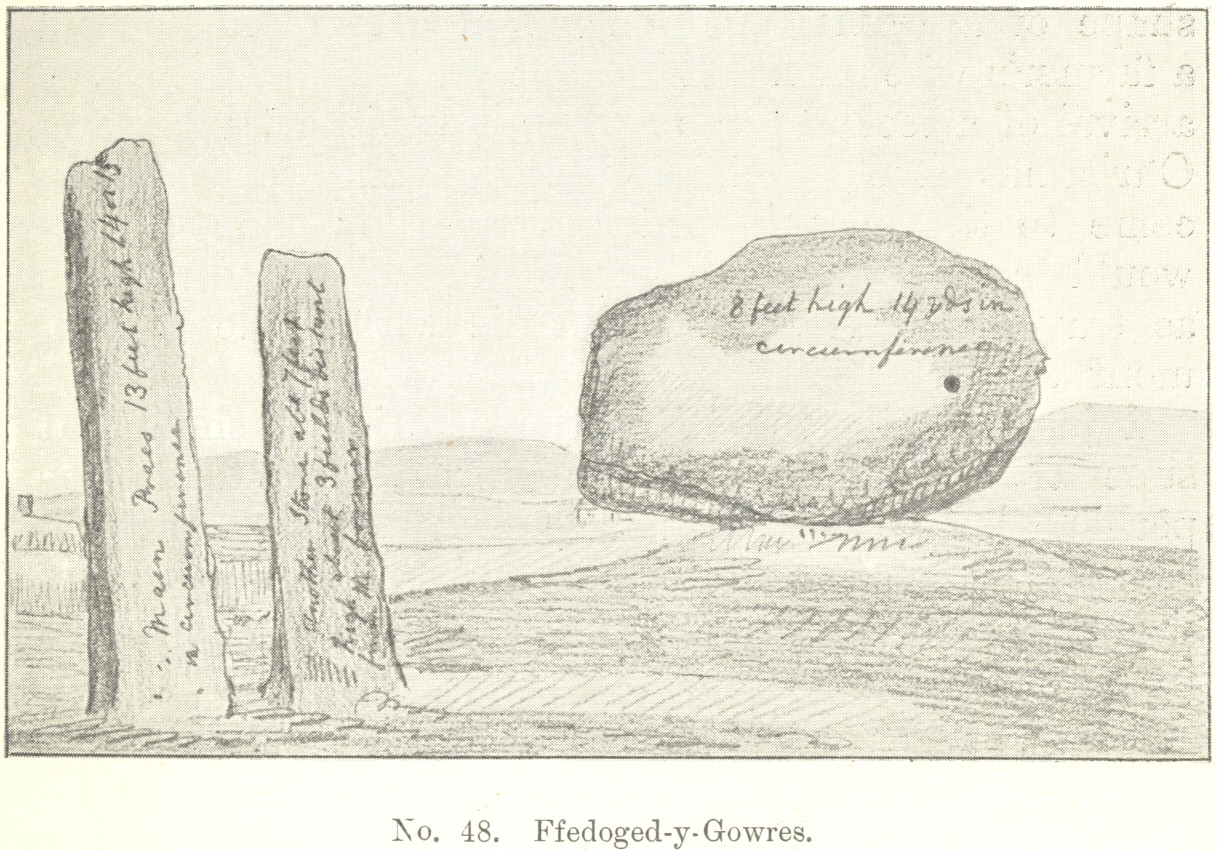 Maen 13 feet high 14 or 15
in circumference
Another Stone abt 7 feet
high about 3 feet distant
from the former
8 feet high 14 yds in
circumference
No. 48. Ffedoged-y-Gowres.